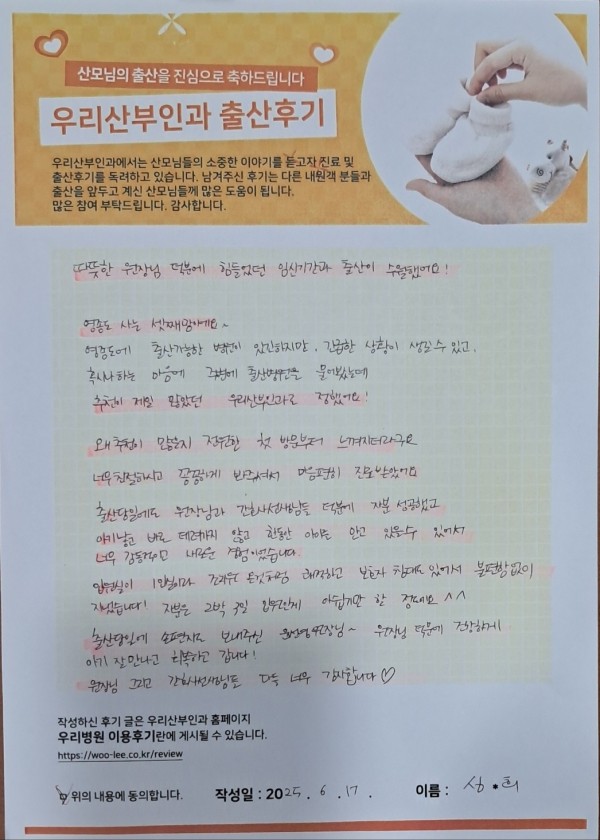 산모님의 출산을 진심으로 축하드립니다
우리산부인과 출산후기
우리산부인과에서는 산모님들의 소중한 이야기를 듣고자 진료 및
출산후기를 독려하고 있습니다. 남겨주신 후기는 다른 내원객 분들과
출산을 앞두고 계신 산모님들께 많은 도움이 됩니다.
많은 참여 부탁드립니다. 감사합니다.
따뜻한 원장님 덕분에 힘들었던 임신기간과 출산이 수월했어요!
영종도 사는 셋째맘이에요~
영종도에 출산가능한 병원이 있긴하지만, 긴급한 상황이 생길수 있고,
혹시나 하는 마음에 주변에 출산병원을 물어봤는데
추천이 제일 많았던 우리산부인과로 정했어요!
왜 추천이 많은지 첫 방문부터 느껴지더라구요
너무 친절하시고 꼼꼼하게 봐주셔서 마음편히 진료받았어요
출산당일에도 원장님과 간호사선생님들 덕분에 자분 성공했고
아기낳고 바로 데려가지 않고 한동안 아이를 안고 있을수 있어서
너무 감동적이고 새로운 경험이었습니다.
입원실이 1인실이라 조리원 온것처럼 쾌적하고 보호자 침대도 있어서 불편함없이
지냈습니다! 자분은 2박 3일 입원인게 아쉽기만 한 정도에요 ^^
출산당일에 손편지도 보내주신 원장님~ 원장님 덕분에 건강하게
아기 잘 만나고 회복하고 갑니다!
원장님 그리고 간호사선생님들 다들 너무 감사합니다♡
작성하신 후기 글은 우리산부인과 홈페이지
우리병원 이용후기란에 게시될 수 있습니다.
https://woo-lee.co.kr/review
위의 내용에 동의합니다. 작성일 : 2025. 6. 17. 이름 : 심*희